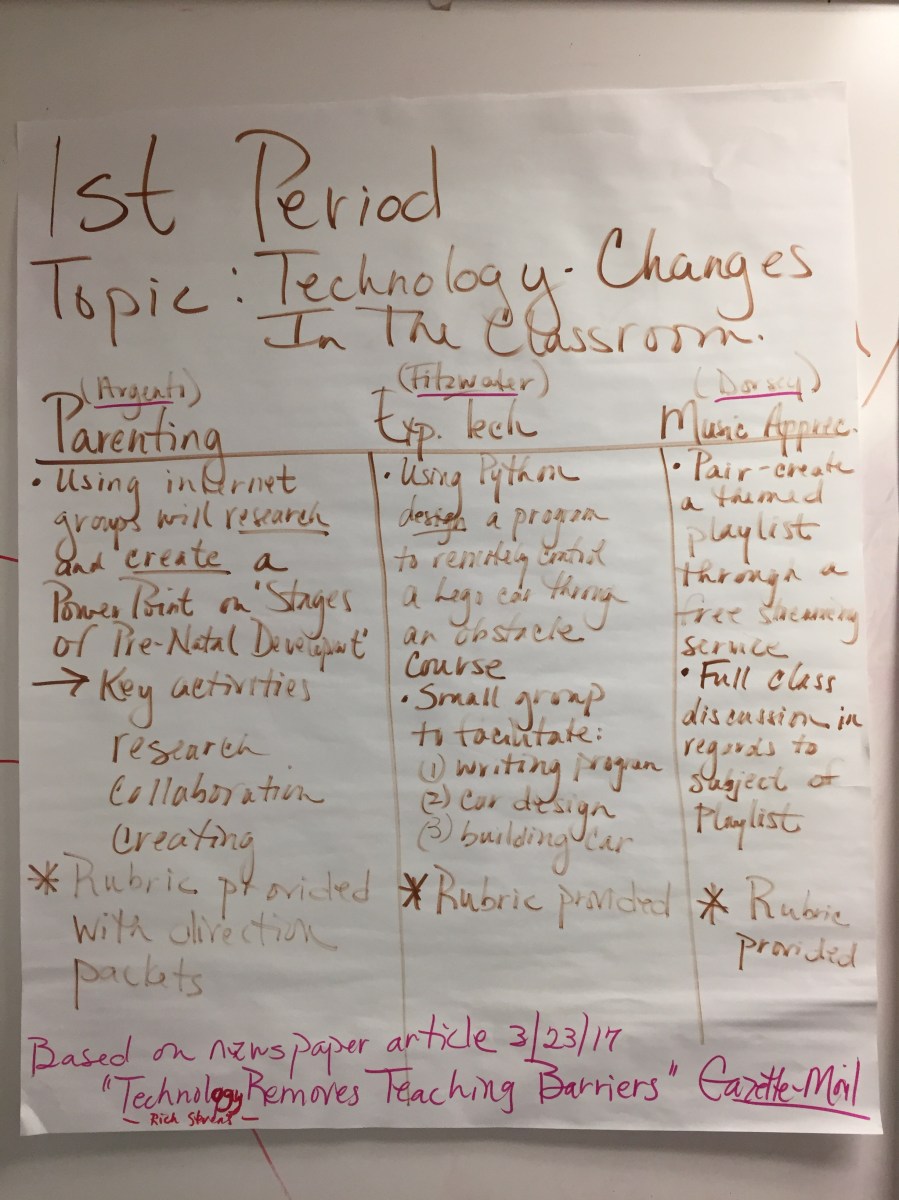 1st Period
Topic: Technology. Changes
In The Classroom.
(Argenti)
Parenting
• Using internet
groups will research
and create a
Power Point on "Stages
of Pre-Natal Develepmt"
→ Key activities
research
Collaboration
Creating
* Rubric provided
with direction
packets
(Fitzwater)
Exp. Tech
• Using Python
design a program
to remotely control
a Lego car through
an obstacle
Course
• Small group
to facilitate:
(1) writing program
(2) Car design
(3) building car
* Rubric provided
(Dorsey)
Music Apprec.
• Pair-create
a themed
playlist
through a
free streaming
service
• Full class
discussion in
regards to
subject of
Playlist
* Rubric
provided
Based on newspaper article 3/23/17
"Technology Removes Teaching Barriers" Gazette-Mail
— Rich —